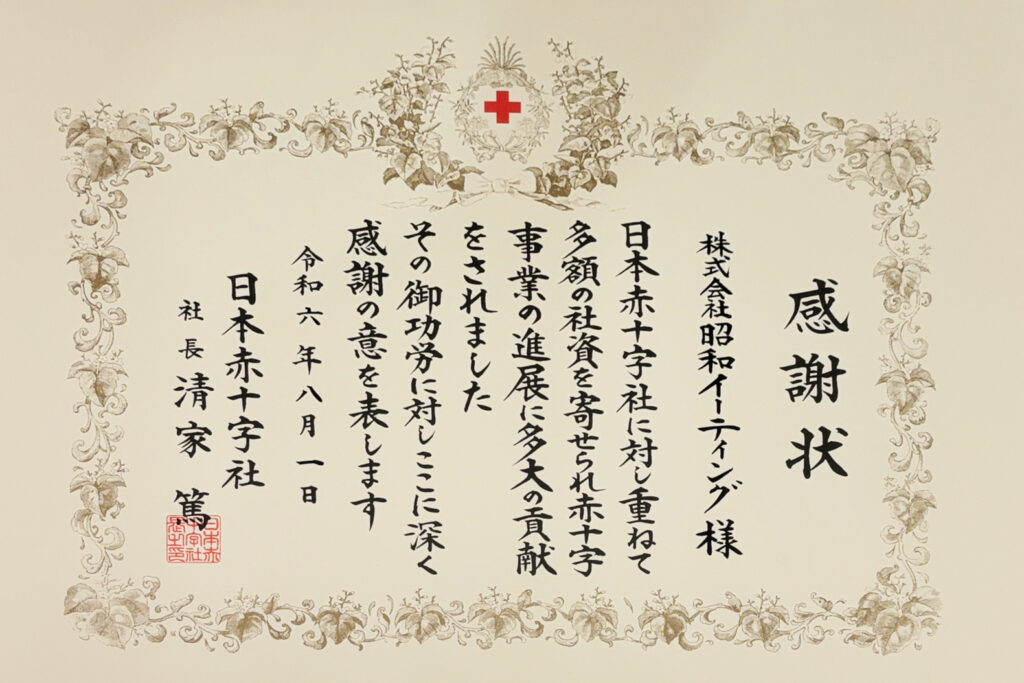 感謝状
株式会社昭和イーティング様
日本赤十字社に対し重ねて
多額の社資を寄せられ赤十字
事業の進展に多大の貢献
をされました
その御功労に対しここに深く
感謝の意を表します
令和六年八月一日
日本赤十字社
社長 清家 篤